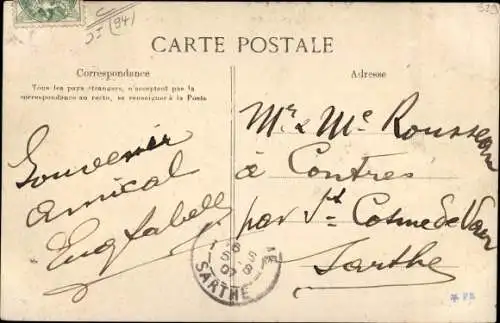 CARTE POSTALE
Correspondance
Tous les pays étrangers, n'acceptent pas la
correspondance au recto, se renseigner à la Poste
Adresse
Souvenir
amical
Mr & Me Rousseau
à Contres
par St Cosme de Vair
Sarthe
SARTHE